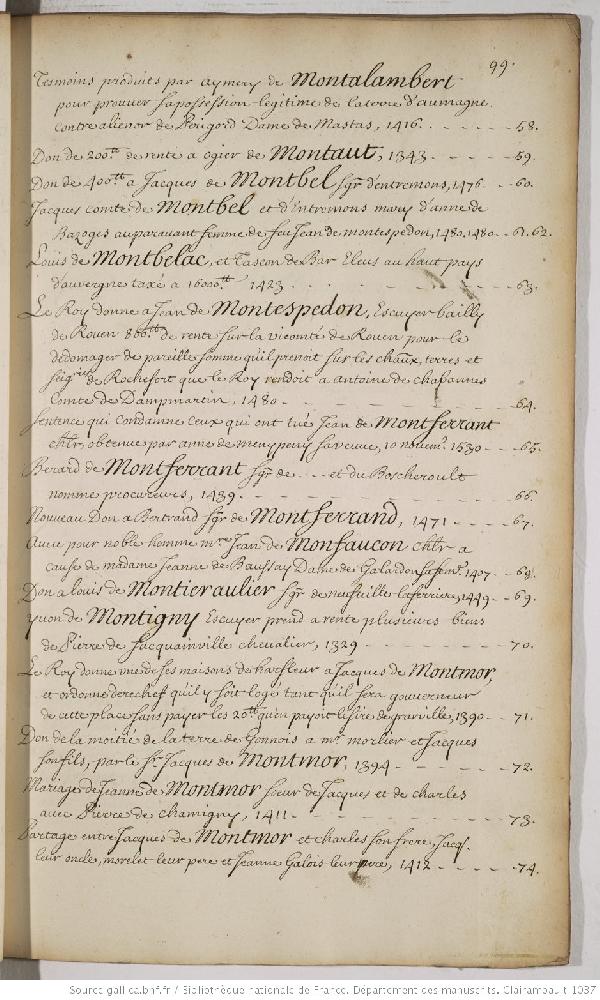 99.
Tesmoins produits par aymery de Montalambert
pour prouver sa possession legitime de la terre d'aumagne
contre alienor de Perigord Dame de Mastas, 1416. - - - - 58.
Don de 200.tt de rente a ogier de Montaut, 1343. - - - - 59.
Don de 400.tt a Jacques de Montbel sgr d'entremons, 1476. - - 60.
Jacques comte de Montbel et d'Entremons mary d'anne de
Bazoges auparavant femme de feu Jean de montespedon, 1480. 1480. - - 61. 62.
Louis de Montbelac, et Tascon de Bar Eleus au haut pays
d'auvergne taxé a 1600.tt 1423 - - - - 63.
Le Roy donne a Jean de Montespedon, Escuyer bailly
de Rouen 800.tt de rente sur la vicomté de Rouen pour le
dedomager de pareille somme qu'il prenoit sur les chaux, terres et
seig.ries de Rochefort que le Roy rendoit a antoine de chabannes
Comte de Dampmartin, 1480 - - - - 64.
Sentence qui condamne ceux qui ont tué Jean de Montferrant
chlr, obtenue par anne de sa veuve, 10 novem.e 1530 - - - 65.
Berard de Montferrant sgr de - - - et du Boscheroult
nomme procureurs, 1439. - - - - 66.
Nouveau Don a Bertrand sgr de Montferrand, 1471 - - - - 67.
Aveu pour noble homme m.re Jean de Monfaucon chlr a
cause de madame Jeanne de Baussay Dame de Galardon sa fem.e 1407 - - 68.
Don a Louis de Montieraulier sgr de neufville laferriere, 1449 - - 69.
yvon de Montigny Escuyer prend a rente plusieurs biens
de Pierre de Jacquainville chevalier, 1329 - - - - 70.
Le Roy donne une de ses maisons de harfleur a Jacques de Montmor,
et ordonne derechef qu'il y soit logé tant qu'il sera gouverneur
de cette place sans payer les 20.tt qu'en payoit le sire de graville, 1390 - - 71.
Don de la moitié de la terre de Gonnois a m.r morlier et Jacques
son fils, par le sr Jacques de Montmor, 1394 - - - - 72.
Mariage de Jeanne de Montmor soeur de Jacques et de charles
avec Pierre de chamigny, 1411 - - - - 73.
Partage entre Jacques de Montmor et charles son frere, Jacq.
leur oncle, morelet leur pere et Jeanne Galois leur mere, 1412 - - - - 74.
Source gallica.bnf.fr / Bibliothèque nationale de France. Département des manuscrits. Clairambault 1037